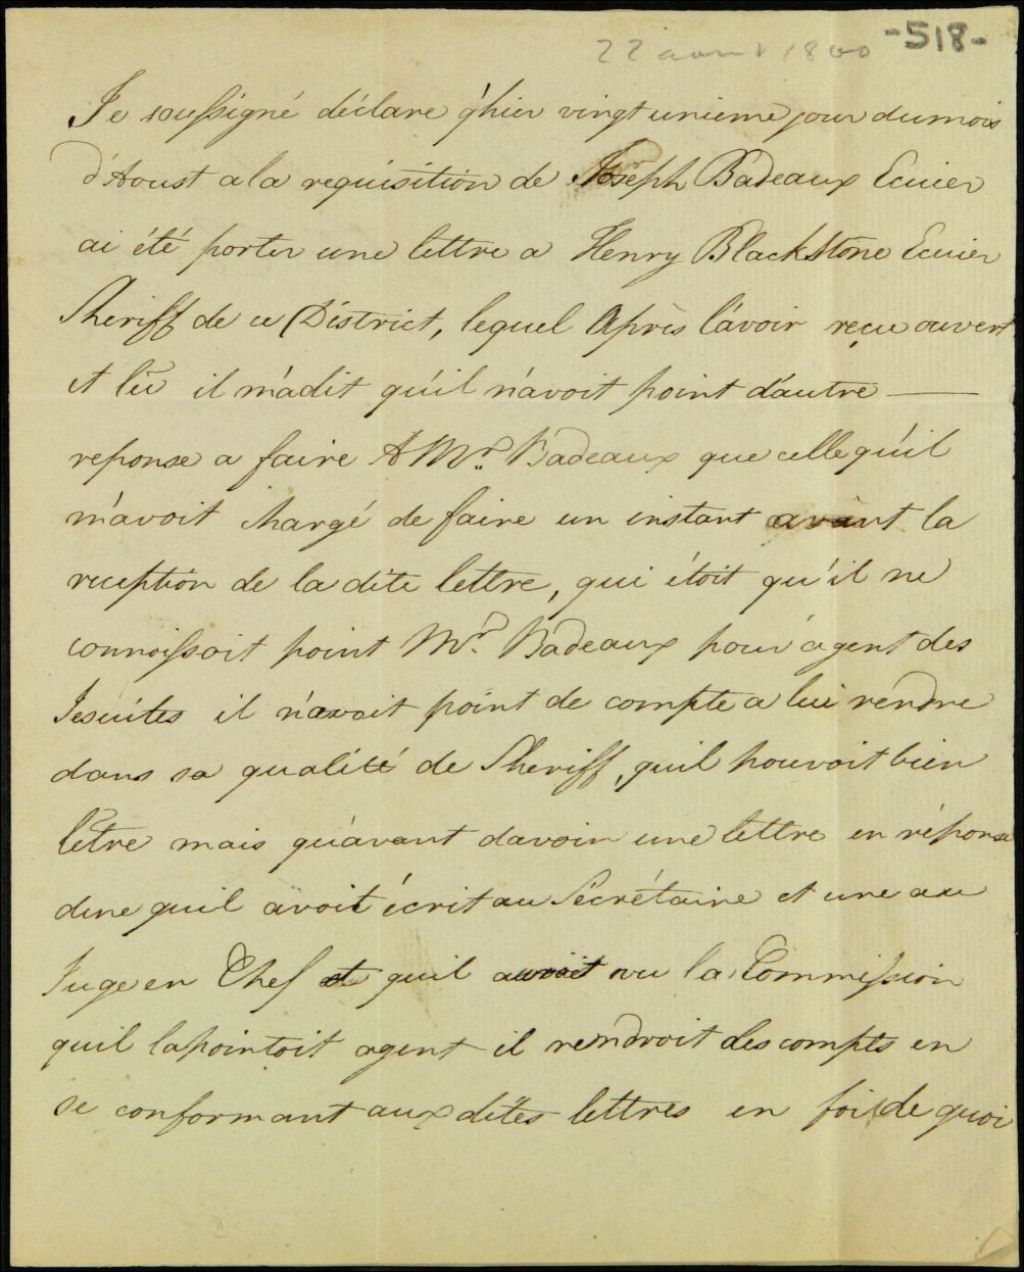 22 aout 1800 -518-
Je soussigné déclare q'hier vingt unieme jour du mois
d'Aoust a la requisition de Joseph Badeaux Ecuier
ai été porter une lettre a Henry Blackstone Ecuier
Sheriff de ce District, lequel Après l'avoir reçu ouvert
et lû il m'a dit qu'il n'avoit point d'autre
reponse a faire A Mr. Badeaux que celle qu'il
m'avoit chargé de faire un instant avant la
reception de la dite lettre, qui étoit qu'il ne
connoissoit point Mr. Badeaux pour agent des
Jesuites il n'avoit point de compte a lui rendre
dans sa qualité de Sheriff, quil pouvoit bien
l'etre mais qu'avant davoir une lettre en réponse
dune quil avoit écrit au Sécrétaire et une au
Juge en Chef et quil auroit vu la Commission
quil lapointoit agent il rendroit des compts en
se conformant aux dites lettres en foi de quoi